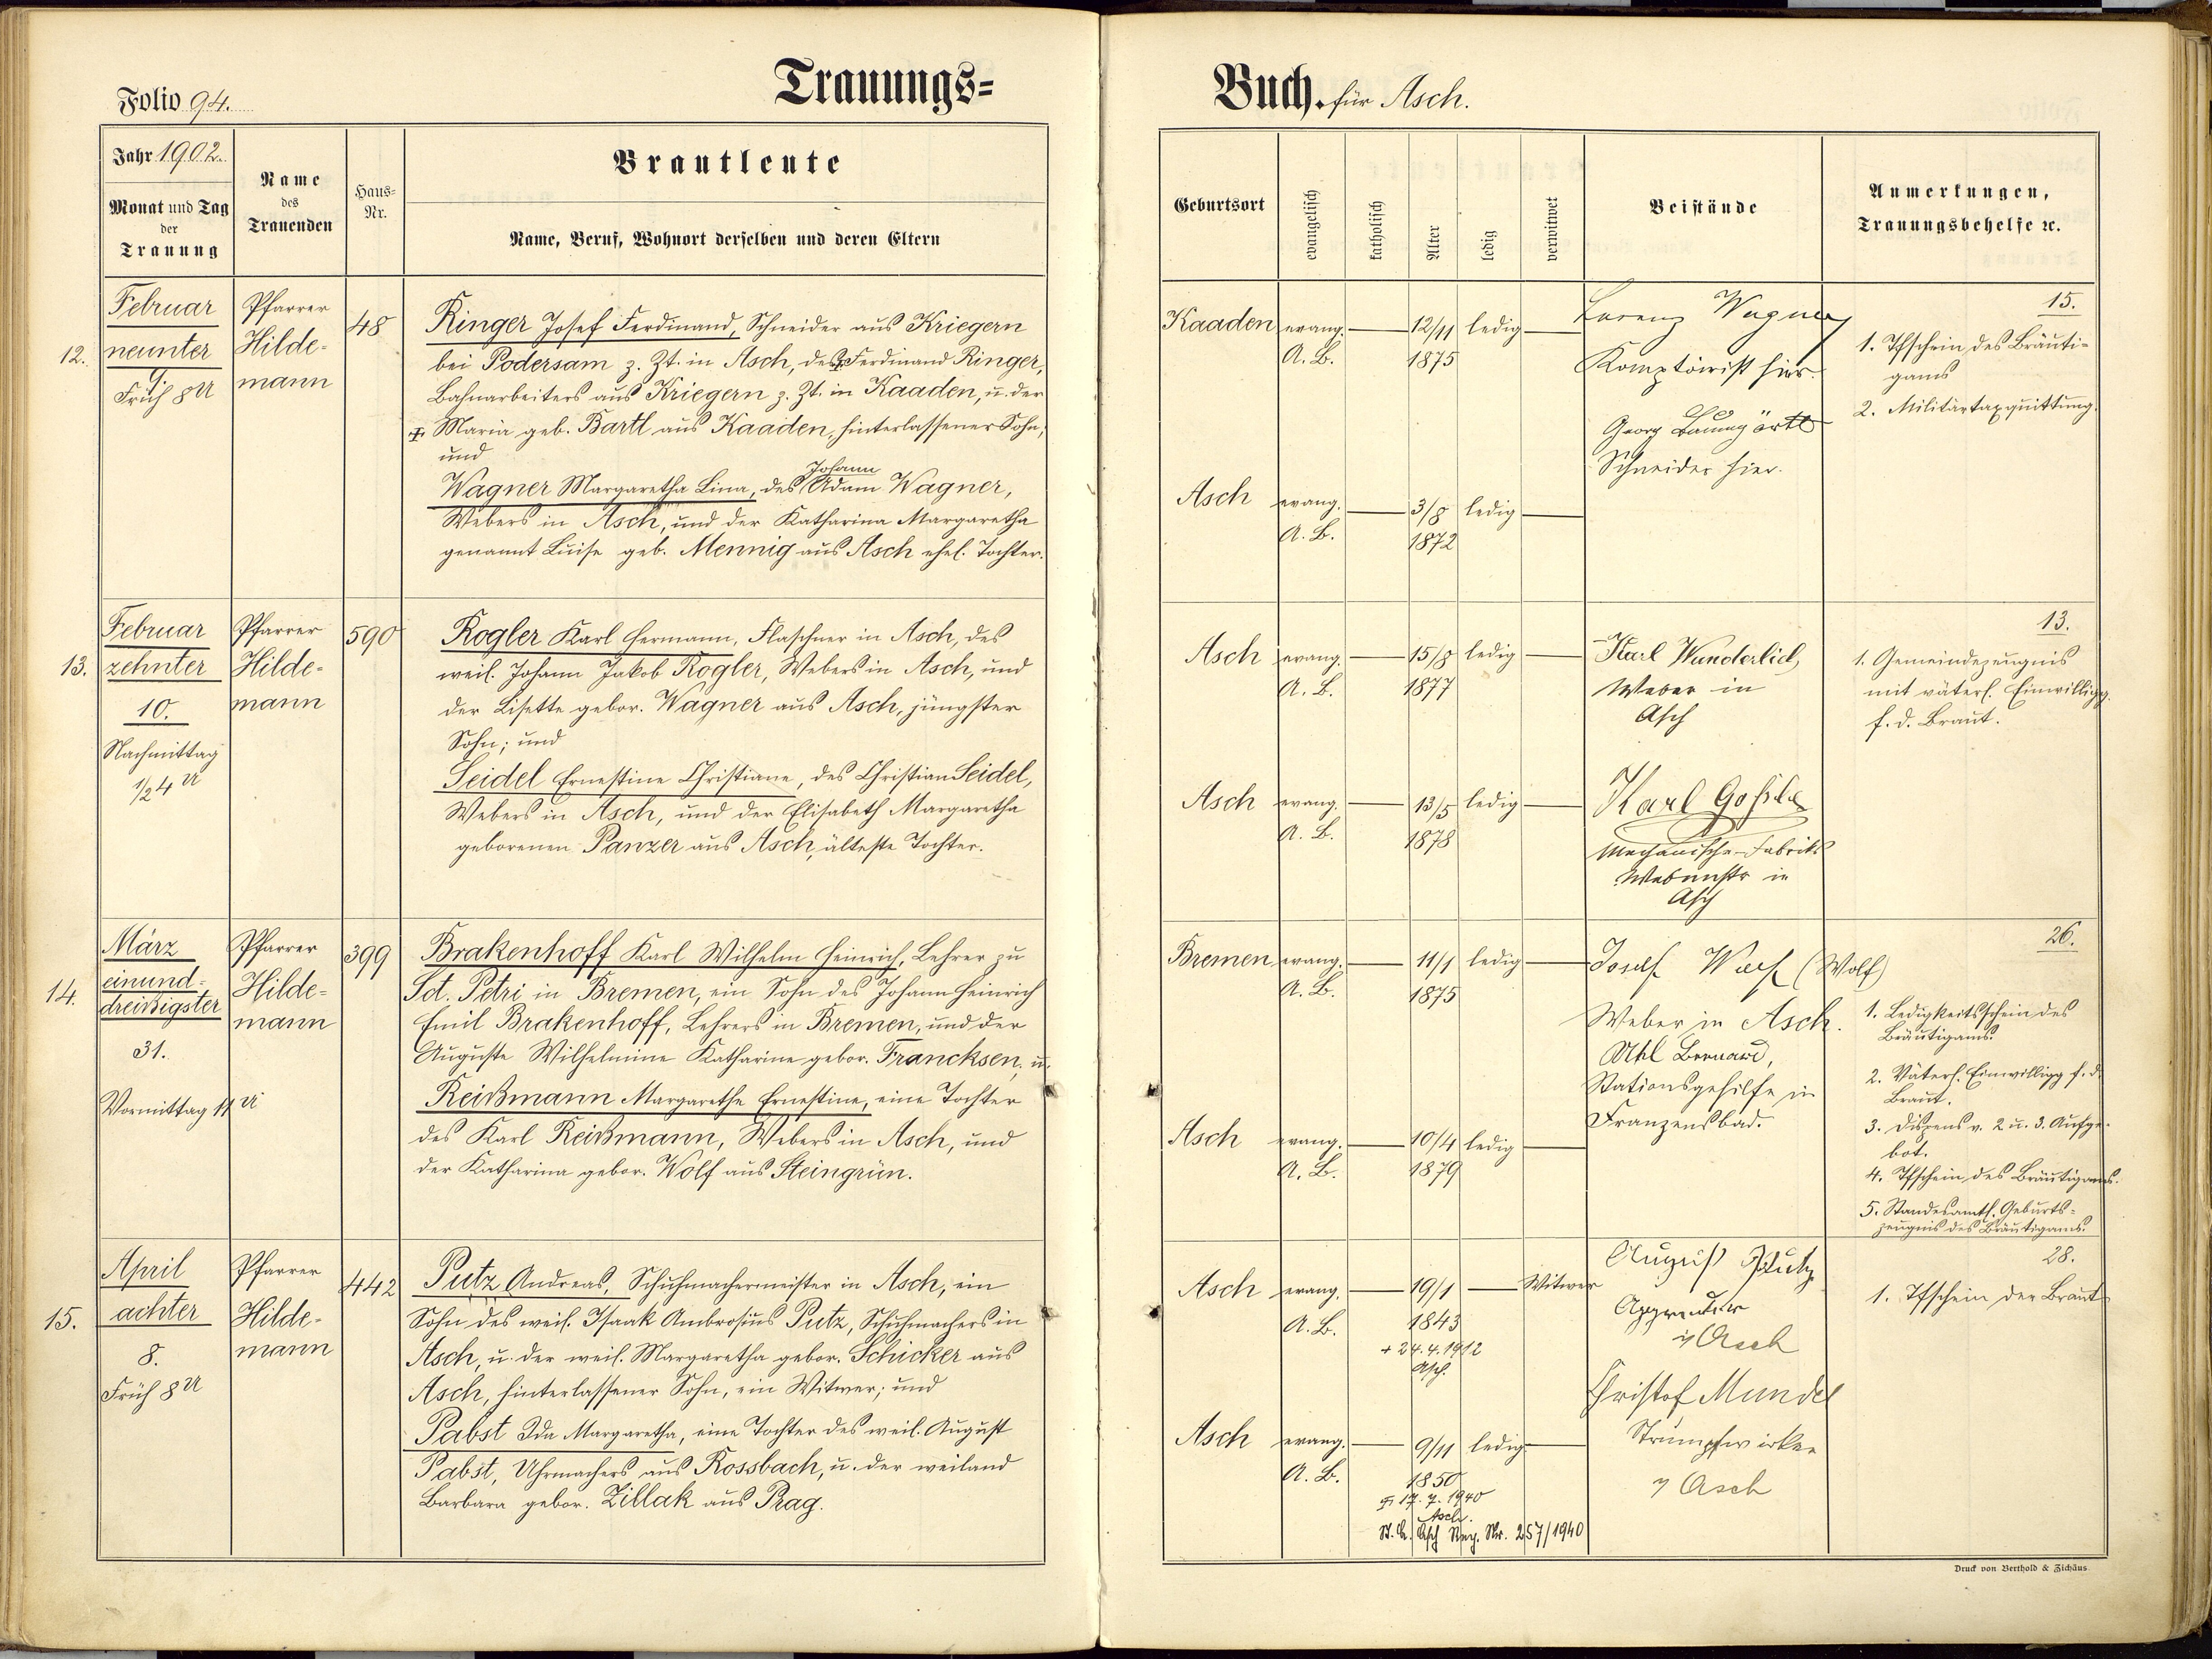 Folio 94.
Trauungs=
Jahr 1902.
Monat und Tag
der
Trauung
Name
des
Trauenden
Haus=
Nr.
Brautleute
Name, Beruf, Wohnort derselben und deren Eltern
12.
Februar
neunter
9.
Früh 8 U
Pfarrer
Hilde-
mann
48
Ringer Josef Ferdinand, Schneider aus Kriegern
bei Podersam z. Zt. in Asch, des Ferdinand Ringer,
Bahnarbeiters aus Kriegern z. Zt. in Kaaden, u. der
Maria geb. Bartl aus Kaaden, hinterlassener Sohn,
und
Johann
Wagner Margaretha Lina, des Adam Wagner,
Webers in Asch, und der Katharina Margaretha
genannt Luise geb. Mennig aus Asch ehel. Tochter.
13.
Februar
zehnter
10.
Nachmittag
1/2 4 U
Pfarrer
Hilde-
mann
590
Rogler Karl Hermann, Flaschner in Asch, des
weil. Johann Jakob Rogler, Webers in Asch, und
der Lisette gebor. Wagner aus Asch, jüngster
Sohn; und
Seidel Ernestine Christiane, des Christian Seidel,
Webers in Asch, und der Elisabeth Margaretha
geborenen Panzer aus Asch, älteste Tochter.
14.
März
einund-
dreißigster
31.
Vormittag 11 U
Pfarrer
Hilde-
mann
399
Brakenhoff Karl Wilhelm Heinrich, Lehrer zu
Sct. Petri in Bremen, ein Sohn des Johann Heinrich
Emil Brakenhoff, Lehrers in Bremen, und der
Auguste Wilhelmine Katharine gebor. Francksen, u.
Reißmann Margarethe Ernestine, eine Tochter
des Karl Reißmann, Webers in Asch, und
der Katharina gebor. Wolf aus Steingrün.
15.
April
achter
8.
Früh 8 U
Pfarrer
Hilde-
mann
442
Putz Andreas, Schuhmachermeister in Asch, ein
Sohn des weil. Isaak Ambrosius Putz, Schuhmachers in
Asch, u. der weil. Margaretha gebor. Schicker aus
Asch, hinterlassener Sohn, ein Witwer; und
Pabst Ida Margaretha, eine Tochter des weil. August
Pabst, Uhrmachers aus Rossbach, u. der weiland
Barbara gebor. Zillak aus Prag.
Buch. für Asch.
Geburtsort
evangelisch
katholisch
Alter
ledig
verwitwet
Beistände
Anmerkungen,
Trauungsbehelfe ec.
Kaaden evang. 12/11 ledig
A. B. 1875
Lorenz Wagner
Komptoirist hier.
Georg Baumgärtl
Schneider hier.
15.
1. Tfschein des Bräuti-
gams
2. Militärtaxquittung.
Asch evang. 3/8 ledig
A. B. 1872
Asch evang. 15/8 ledig
A. B. 1877
Karl Wunderlich,
Weber in
Asch
13.
1. Gemeindezeugnis
mit väterl. Einwilligg.
f. d. Braut.
Asch evang. 13/5 ledig
A. B. 1878
Karl
Mechanische-Fabriks
in
Asch
Bremen evang. 11/1 ledig
A. B. 1875
Josef Wolf (Wolf)
Weber in Asch.
Uhl Bernard,
Stationsgehilfe in
Franzensbad.
26.
1. Ledigkeitsschein des
Bräutigams.
2. Väterl. Einwilligg f. d.
Braut.
3. Dispens v. 2 u. 3. Aufge-
bot.
4. Tfschein des Bräutigams.
5. Standesamtl. Geburts-
zeugnis des Bräutigams.
Asch evang. 10/4 ledig
A. B. 1879
Asch evang. 19/1 Witwer
A. B. 1843
+ 24.4.1912
Asch.
August Putz
in Asch
Christof Mundel
Strumpfwirker
in Asch
28.
1. Tfschein der Braut
Asch evang. 9/11 ledig
A. B. 1850
17.7.1940
Asch.
St. A. Asch Reg. Nr. 257/1940
Druck von Berthold & Zichäus